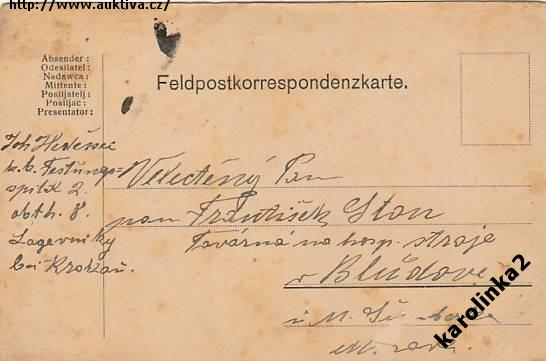 http://www.auktiva.cz/
Absender:
Odesilatel:
Nadawca:
Mittente:
Posiljatelj:
Posiljac:
Presentator:
Feldpostkorrespondenzkarte.
Joh
k.k. Festungs-
spital 2.
abth. 8.
Lagevniky
bei Krakau
Velectěný Pan
pan František Stan
Továrna na hosp. stroje
v Bludově
u M.
karolinka2